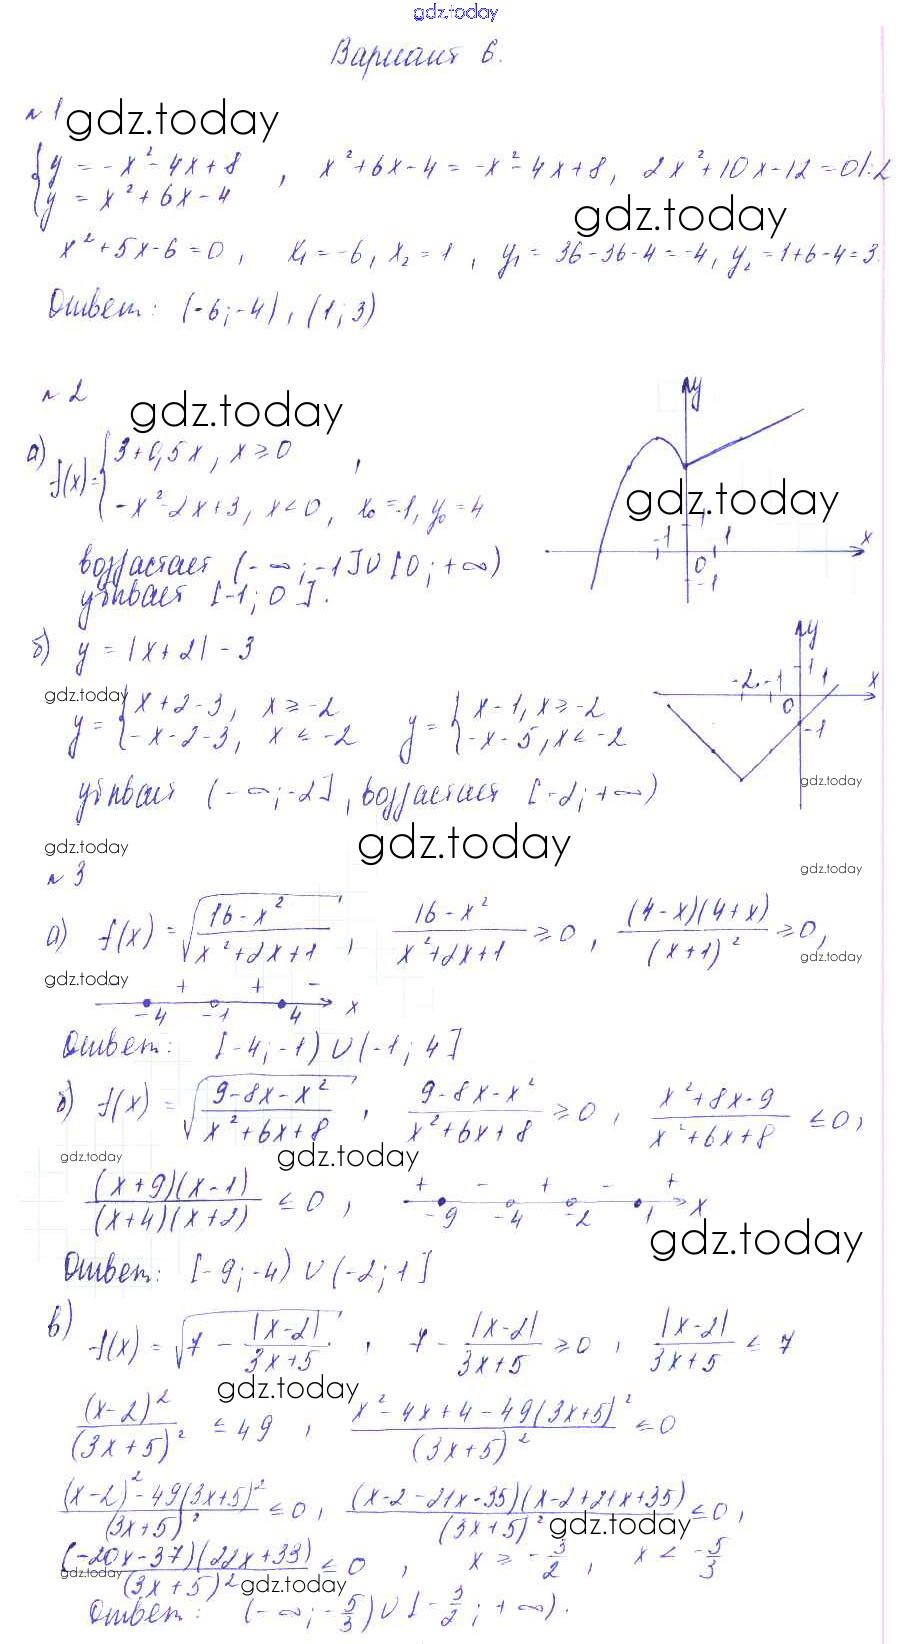 gdz.today
Вариант 6.
№1 gdz.today
{y = -x² - 4x + 8
{y = x² + 6x - 4 , x² + 6x - 4 = -x² - 4x + 8, 2x² + 10x - 12 = 0 |:2
gdz.today
x² + 5x - 6 = 0, x₁ = -6, x₂ = 1, y₁ = 36 - 36 - 4 = -4, y₂ = 1 + 6 - 4 = 3.
Ответ: (-6; -4), (1; 3)
№2 gdz.today
а) f(x) = {3 + 0,5x, x ≥ 0 ,
{-x² - 2x + 3, x < 0, x₀ = -1, y₀ = 4
y
gdz.today
-1 1 1 x
0
-1
возрастает (-∞; -1] ∪ [0; +∞)
убывает [-1; 0].
б) y = |x + 2| - 3
y
gdz.today
-2 -1 1 1 x
0
-1
y = {x + 2 - 3, x ≥ -2 y = {x - 1, x ≥ -2
{-x - 2 - 3, x ≤ -2 {-x - 5, x < -2
убывает (-∞; -2], возрастает [-2; +∞)
gdz.today
gdz.today
gdz.today
gdz.today
№3
а) f(x) = √((16 - x²)/(x² + 2x + 1)) , (16 - x²)/(x² + 2x + 1) ≥ 0, ((4 - x)(4 + x))/((x + 1)²) ≥ 0,
gdz.today
gdz.today
+ + -
-4 -1 4 x
Ответ: [-4; -1) ∪ (-1; 4]
б) f(x) = √((9 - 8x - x²)/(x² + 6x + 8)) , (9 - 8x - x²)/(x² + 6x + 8) ≥ 0, (x² + 8x - 9)/(x² + 6x + 8) ≤ 0,
gdz.today
gdz.today
((x + 9)(x - 1))/((x + 4)(x + 2)) ≤ 0, + - + - +
-9 -4 -2 1 x
gdz.today
Ответ: [-9; -4) ∪ (-2; 1]
в) f(x) = √(7 - |x - 2|/(3x + 5)) , 7 - |x - 2|/(3x + 5) ≥ 0, |x - 2|/(3x + 5) ≤ 7
gdz.today
(x - 2)²/(3x + 5)² ≤ 49, (x² - 4x + 4 - 49(3x + 5)²)/(3x + 5)² ≤ 0
((x - 2)² - 49(3x + 5)²)/(3x + 5)² ≤ 0, ((x - 2 - 21x - 35)(x - 2 + 21x + 35))/(3x + 5)² ≤ 0,
gdz.today
((-20x - 37)(22x + 33))/(3x + 5)² ≤ 0, x ≥ -3/2, x < -5/3
gdz.today
gdz.today
Ответ: (-∞; -5/3) ∪ [-3/2; +∞).